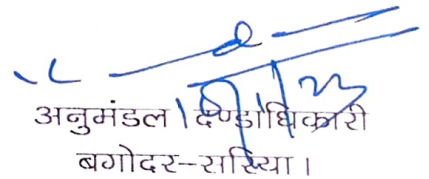 अनुमंडल दण्डाधिकारी
बगोदर-सरिया।